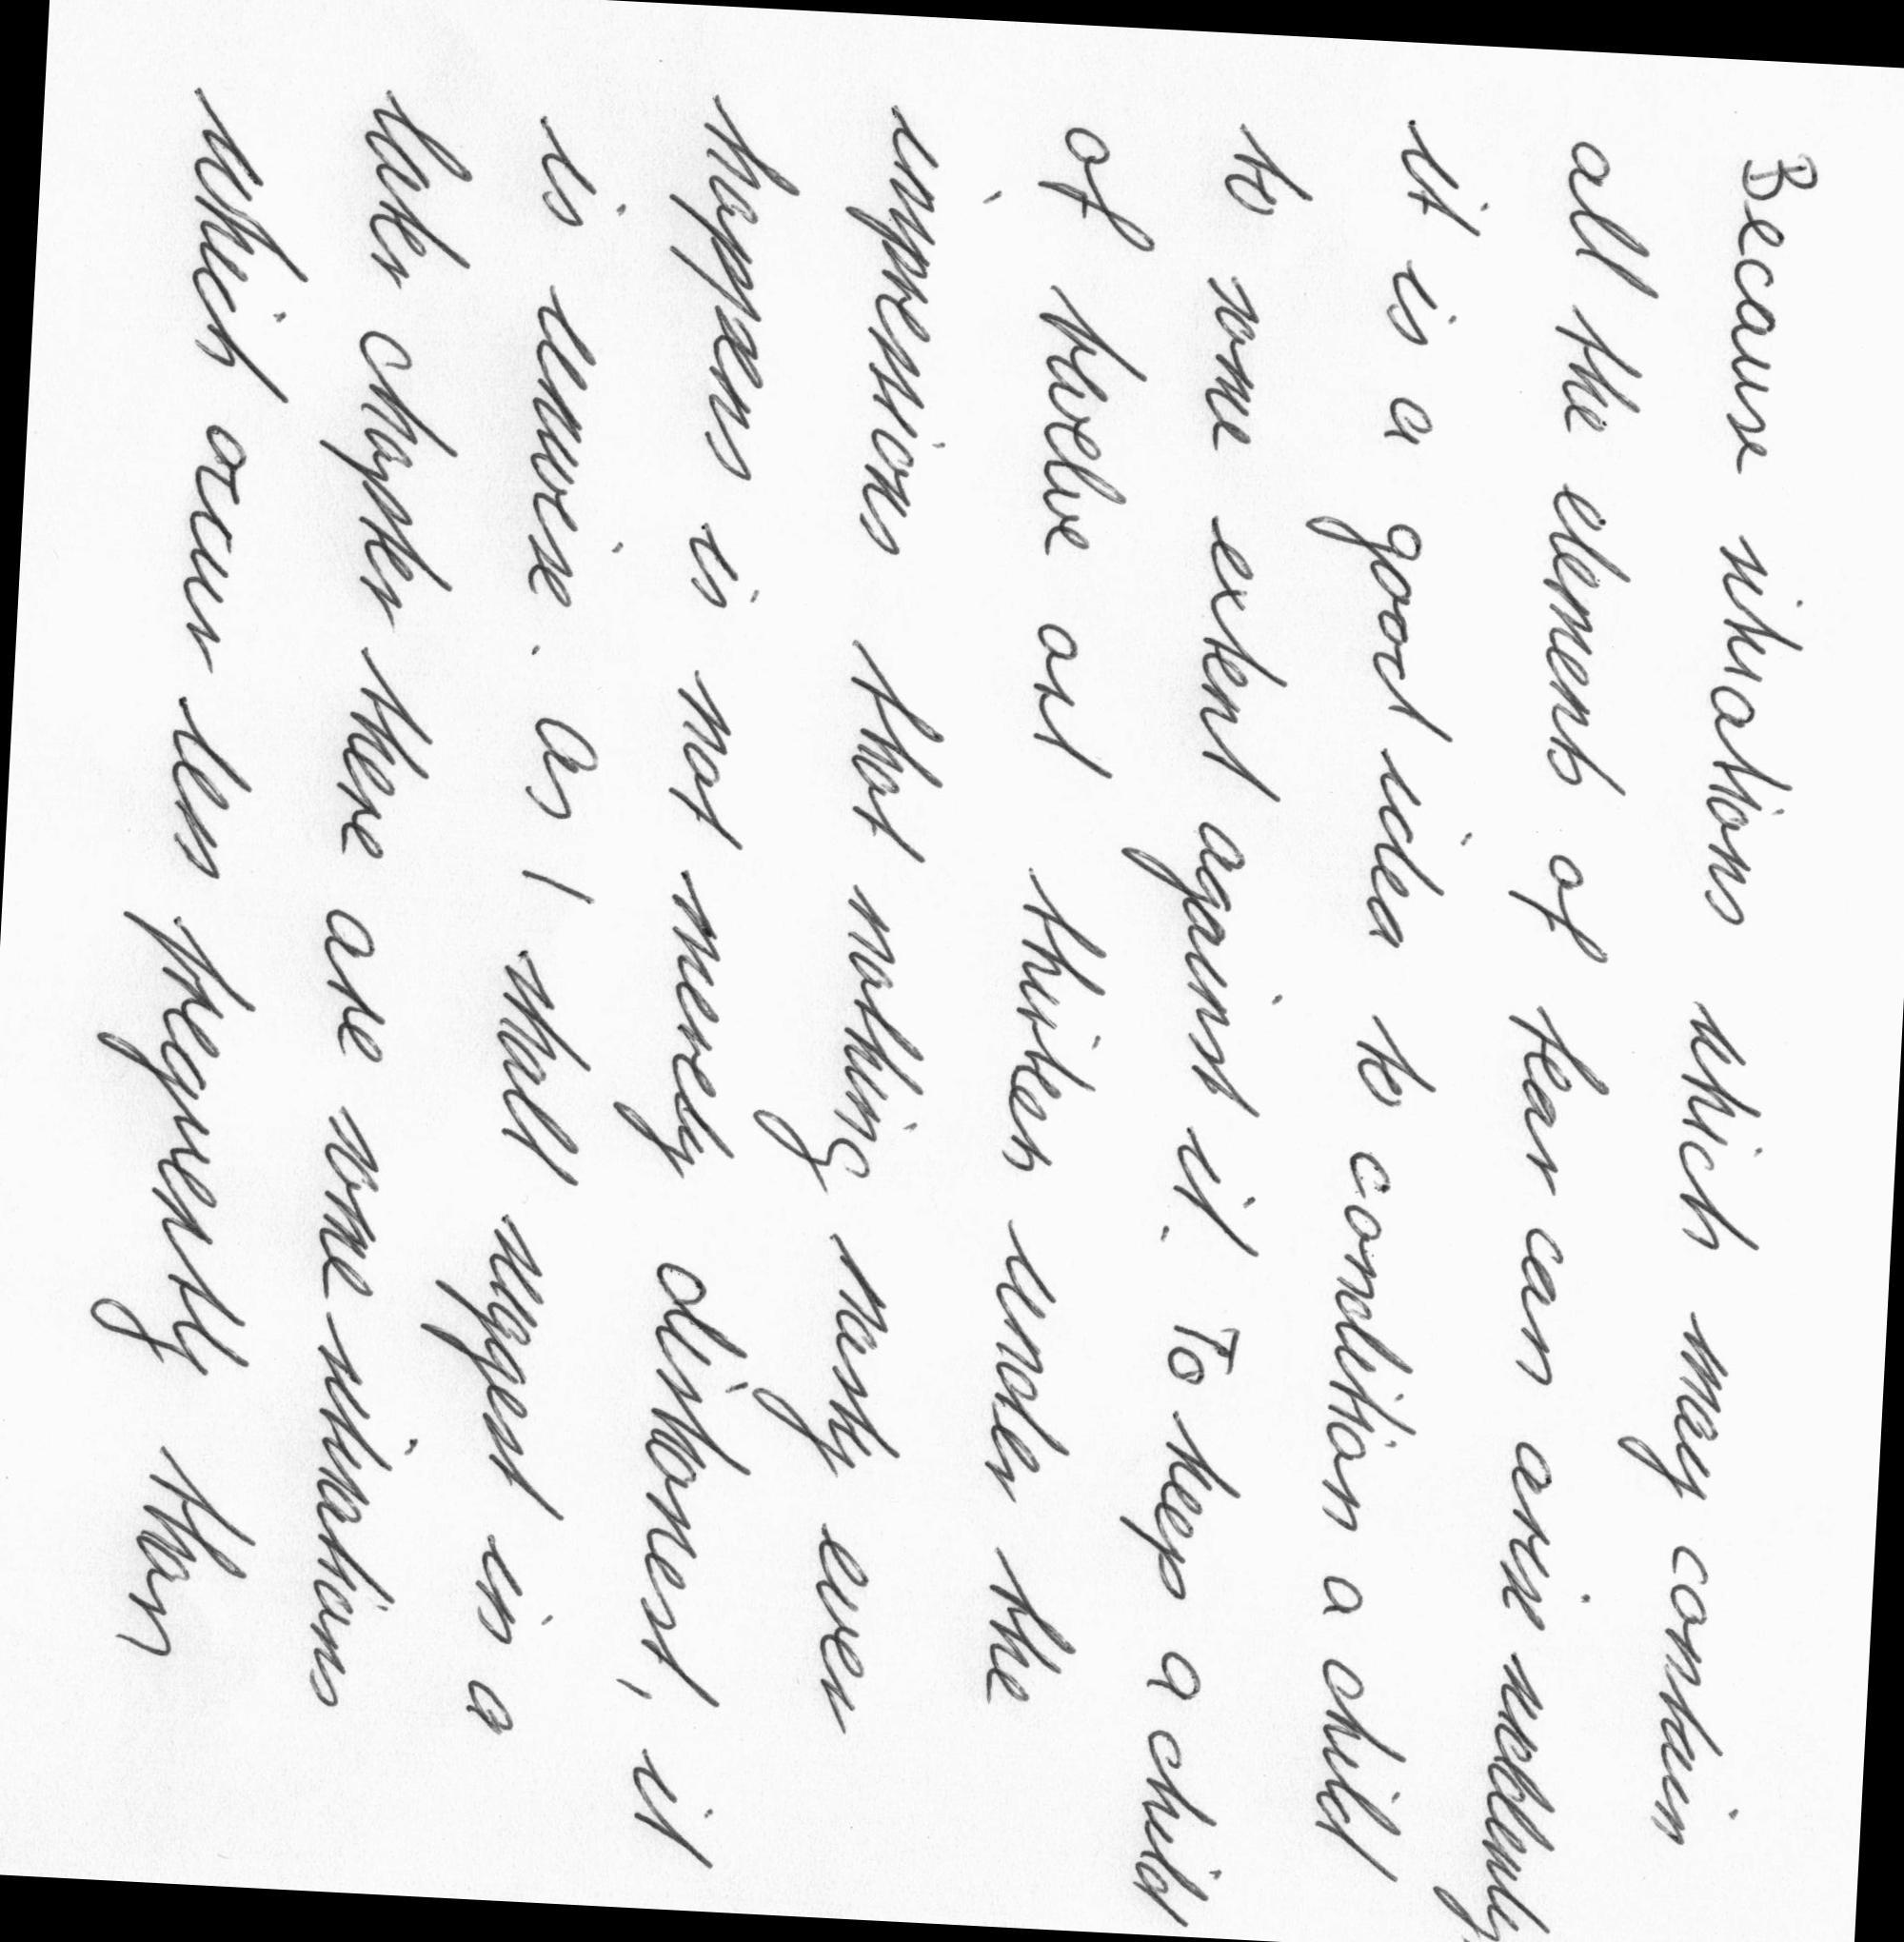 Because situations which may contain
all the elements of fear can arise suddenly
it is a good idea to condition a child
to some extent against it. To keep a child
of twelve or thirteen under the
impressions that nothing nasty ever
happens is not merely dishonest, it
is unwise. As I shall suggest in a
later chapter there are some situations
which occur less frequently than